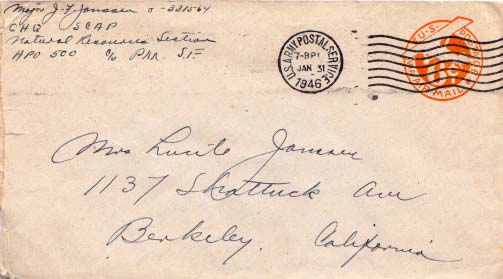 Major J. F. Janssen O-331564
GHQ SCAP
Natural Resources Section
APO 500 c/o P.M. S.F.
U.S. ARMY POSTAL SERVICE
7-8 PM
JAN 31
1946
U.S. POSTAGE
AIR MAIL
Mrs Lucile Janssen
1137 Shattuck Ave
Berkeley, California